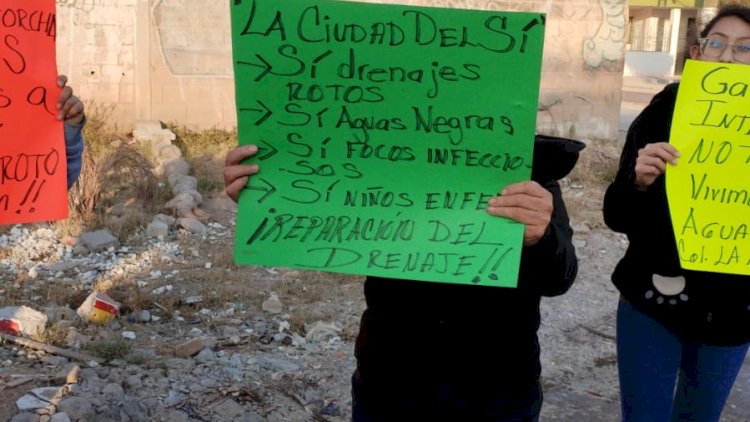 ORCHA
S
S A
ROTO
!!
"LA CIUDAD DEL SÍ"
→ SÍ drenajes
ROTOS
→ SÍ AGUAS NEGRAS
→ SÍ FOCOS INFECCIO-
SOS
→ SÍ NIÑOS ENFE
¡REPARACIÓN DEL
DRENAJE!!
Ga
INT
NOT
VIVIM
AGUA
COL. LA